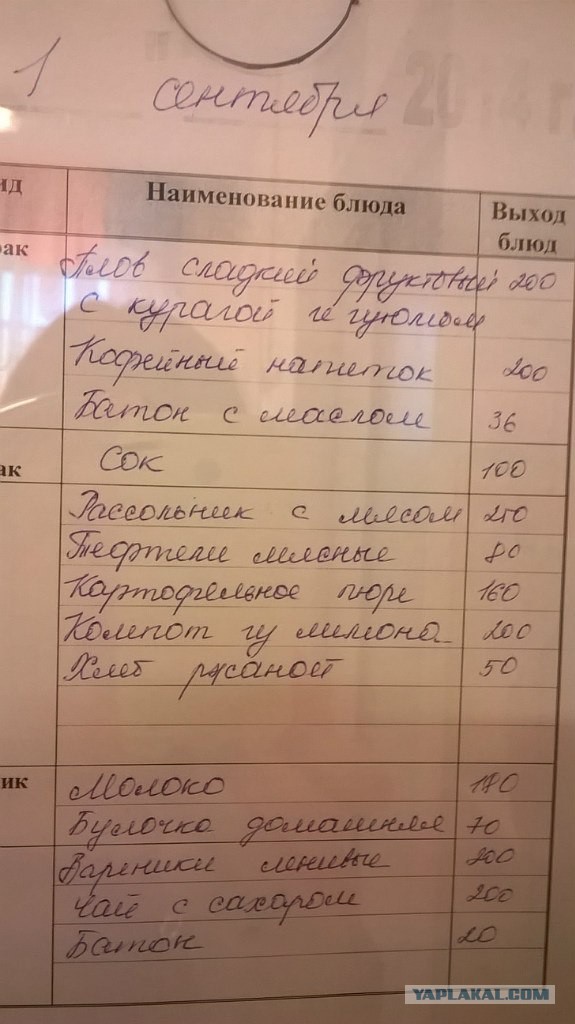 1 сентября
2014 г
ид Наименование блюда Выход блюд
рак Плов сладкий фруктовый 200
с курагой и изюмом
Кофейный напиток 200
Батон с маслом 36
ак Сок 100
Рассольник с мясом 250
Тефтели мясные 80
Картофельное пюре 160
Компот из лимона 200
Хлеб ржаной 50
ик Молоко 170
Булочка домашняя 70
Вареники ленивые 200
Чай с сахаром 200
Батон 20
YAPLAKAL.COM